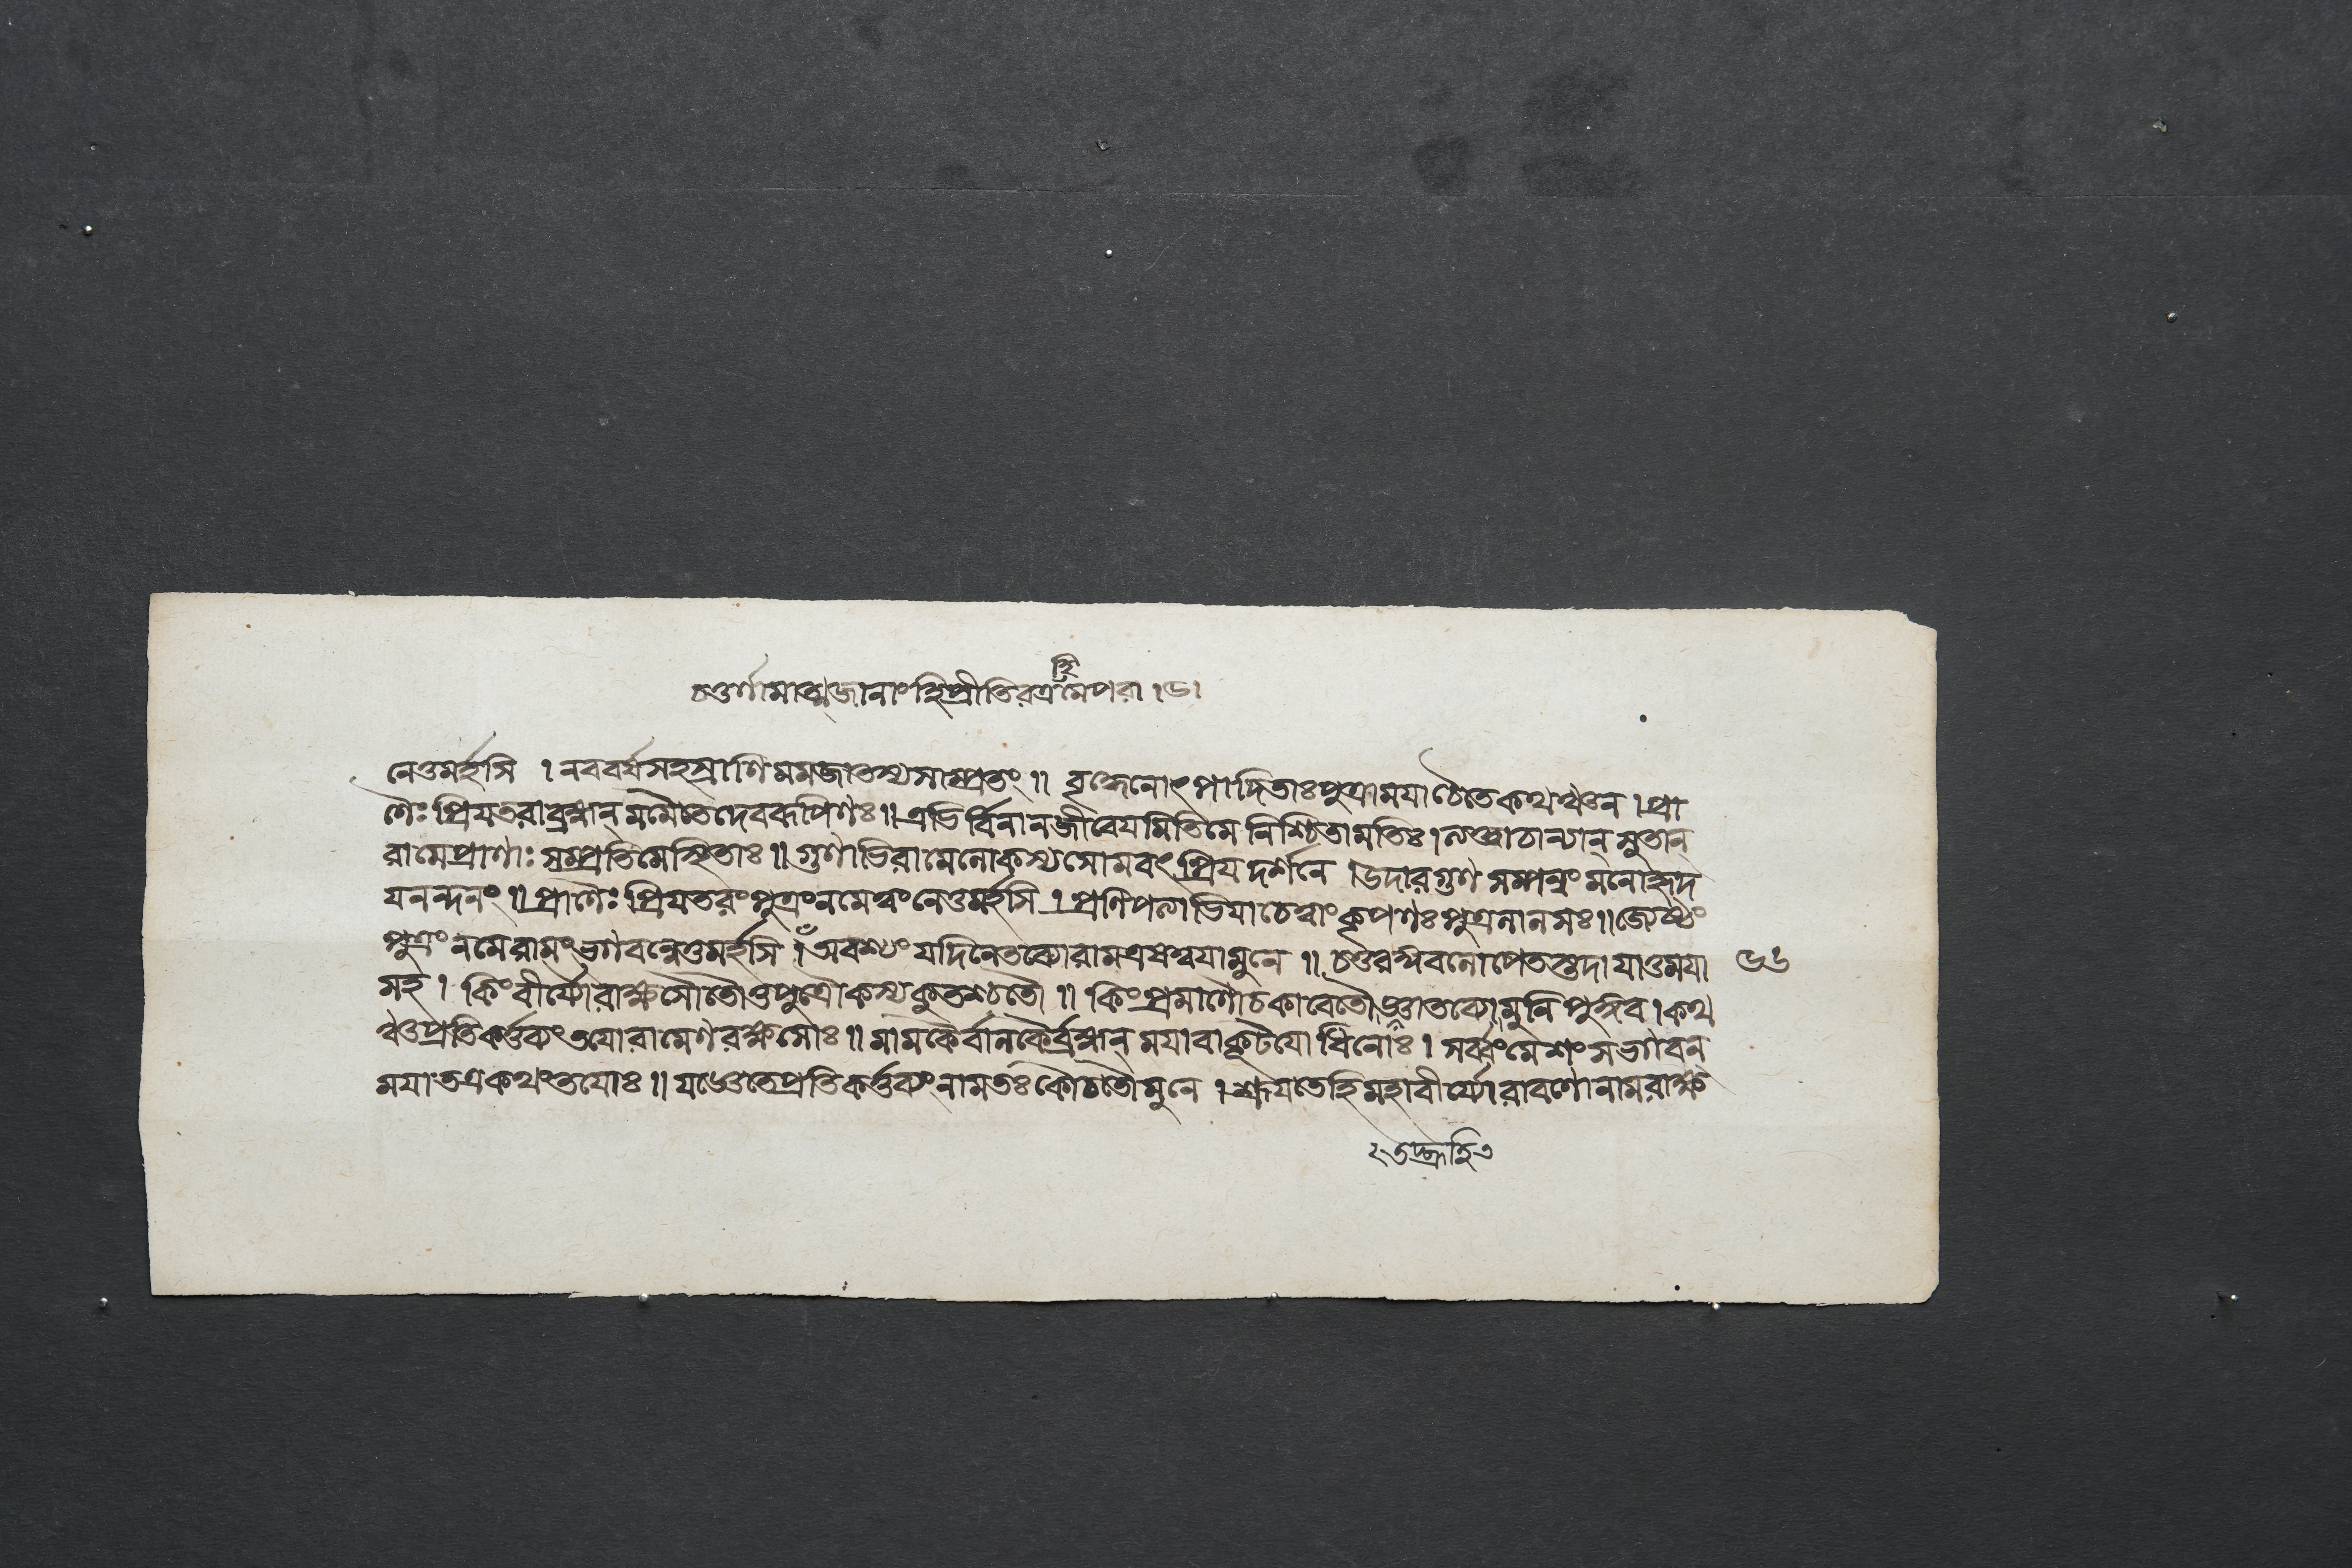 চতুর্ণামাত্মজানাং হি প্রীতিরত্র মে পরা ।৬।
হি
নেতুমর্হসি । নববর্ষসহস্রাণি মমজাতস্য সাম্প্রতং ॥ বৃদ্ধেনোৎপাদিতাঃ পুত্রাময়াচৈতেকথঞ্চন । প্রা
ণৈঃ প্রিয়তরাব্রহ্মন্ মমৈতেদেবরূপিণঃ ॥ এভির্বিনানজীবেয়মিতিমে নিশ্চিতামতিঃ । সুতান্
রামেপ্রাণাঃ সম্প্রতিমেস্থিতাঃ ॥ গুণাভিরামেলোকস্য সোমবৎ প্রিয়দর্শনে । উদারগুণসম্পন্নং মনোহৃদ
য়নন্দনং ॥ প্রাণৈঃ প্রিয়তরং পুত্রংনমেত্বংনেতুমর্হসি । প্রণিপত্যাভিযাচেত্বাং কৃপণঃ পুত্রলালসঃ ॥ জ্যেষ্ঠং
পুত্রং নমেরামং ভগবন্নেতুমর্হসি । অবশ্যং যদিনেতব্যোরামএষত্বয়ামুনে ॥ চতুরঙ্গবলোপেতস্তদাযাতুময়া
৬৬
সহ । কিংবীর্য্যৌরাক্ষসৌতৌতুপুত্রৌকস্যকুতশ্চতৌ ॥ কিংপ্রমাণৌচকাবেতৌ জ্ঞাতব্যৌমুনিপুঙ্গব । কথ
ঞ্চপ্রতিকর্ত্তব্যং তয়োরামেণরক্ষসোঃ ॥ মামকৈর্বাবলৈর্ব্রহ্মন্ ময়াবাকূটয়োধিনোঃ । সর্ব্বংমেশংসভগবন্
ময়াতত্রকথংতয়োঃ ॥ প্রতিকর্ত্তব্যং নামতঃ কৌচতৌমুনে । শ্রূয়তেহিমহাবীর্য্যোরাবণোনামরাক্ষ